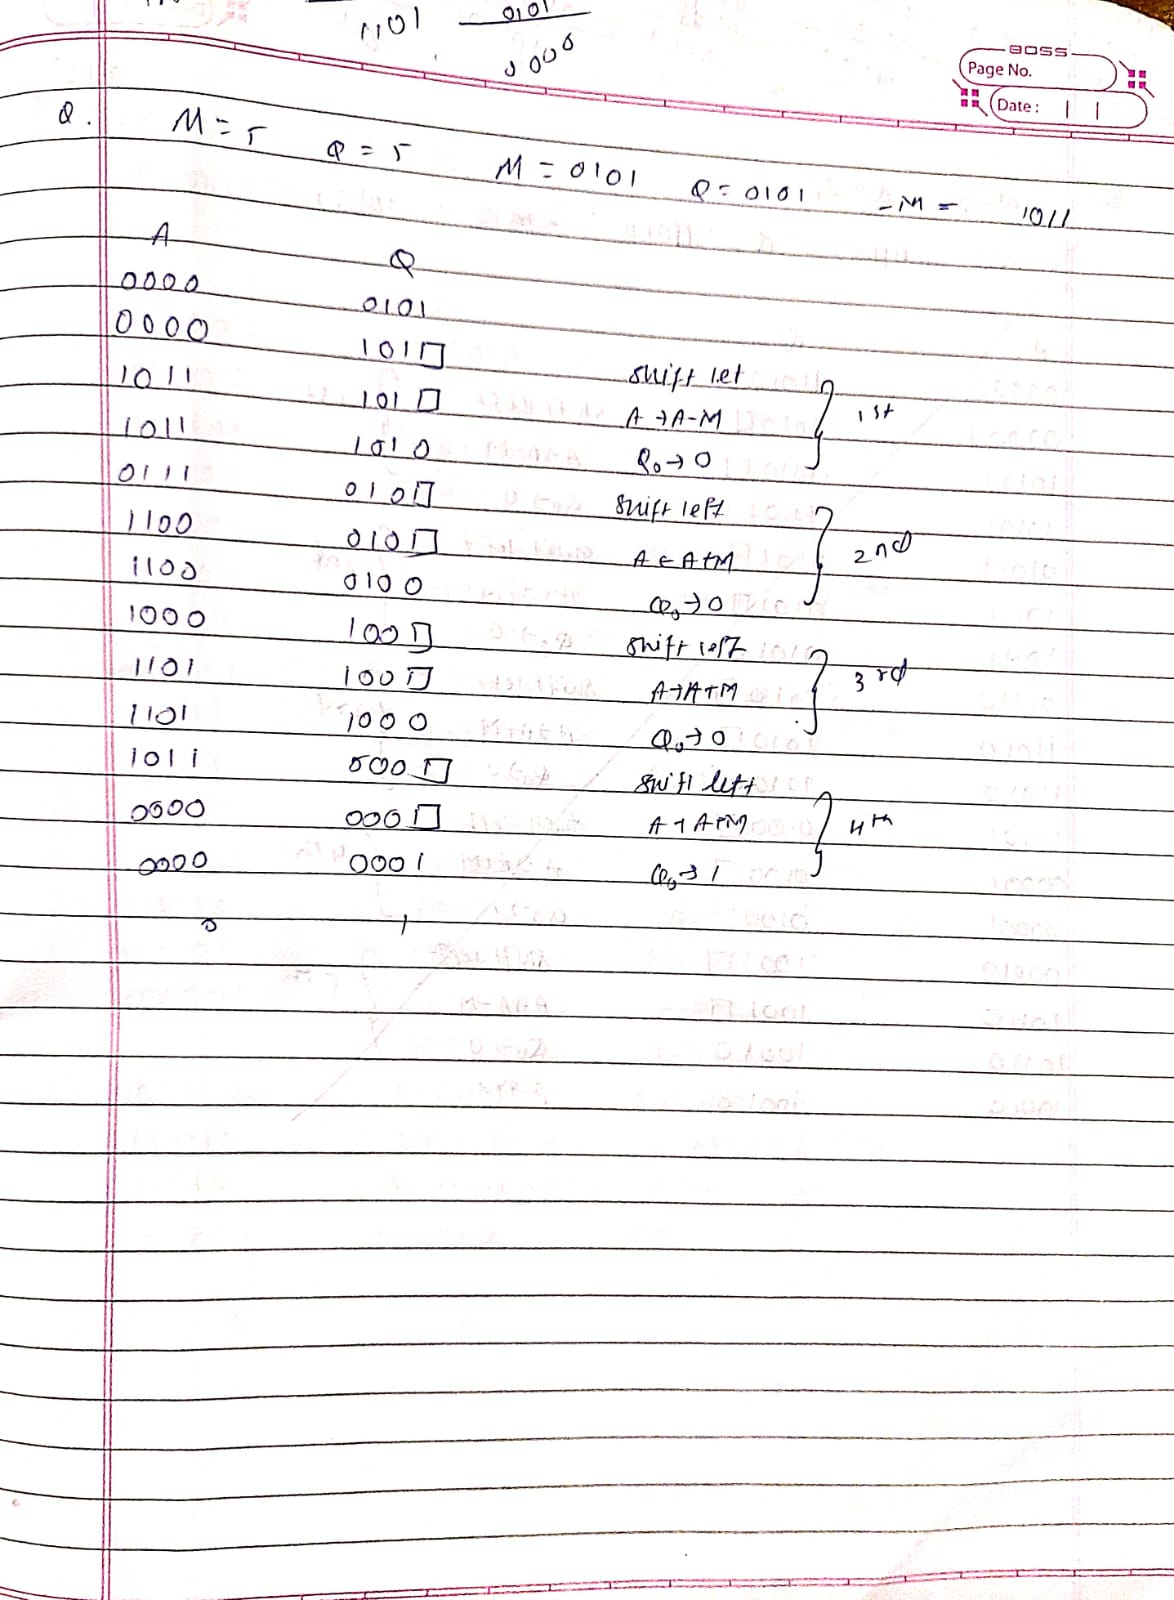 1101 0101
0000
BOSS
Page No.
Date :
Q. M = 5 Q = 5 M = 0101 Q = 0101 -M = 1011
A Q
0000 0101
0000 101□ shift let
1011 101□ A → A-M 1st
1011 1010 Q₀ → 0
0111 010□ shift left
1100 010□ A ← A+M 2nd
1100 0100 Q₀ → 0
1000 100□ shift left
1101 100□ A → A+M 3rd
1101 1000 Q₀ → 0
1011 000□ shift left
0000 000□ A → A+M 4th
0000 0001 Q₀ → 1
0 1